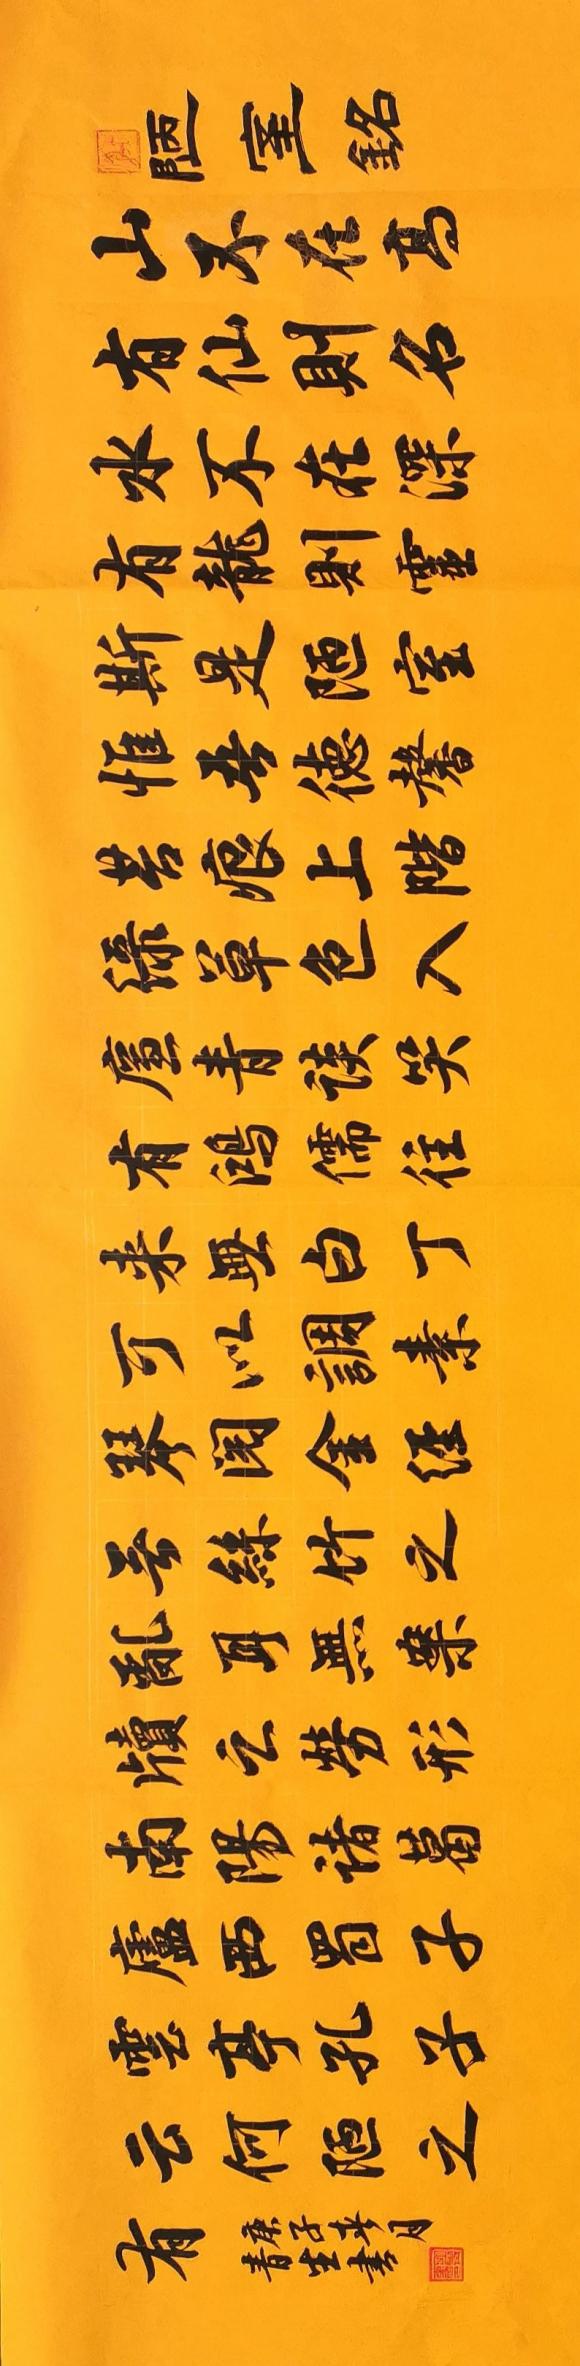 陋室銘
山不在高
有仙則名
水不在深
有龍則靈
斯是陋室
惟吾德馨
苔痕上階
綠草色入
青談笑
有鴻儒往
来無白丁
可以調素
琴閱金經
无絲竹之
亂耳無案
牘之勞形
南陽諸葛
廬西蜀子
雲亭孔子
云何陋之
有
庚子月
生書